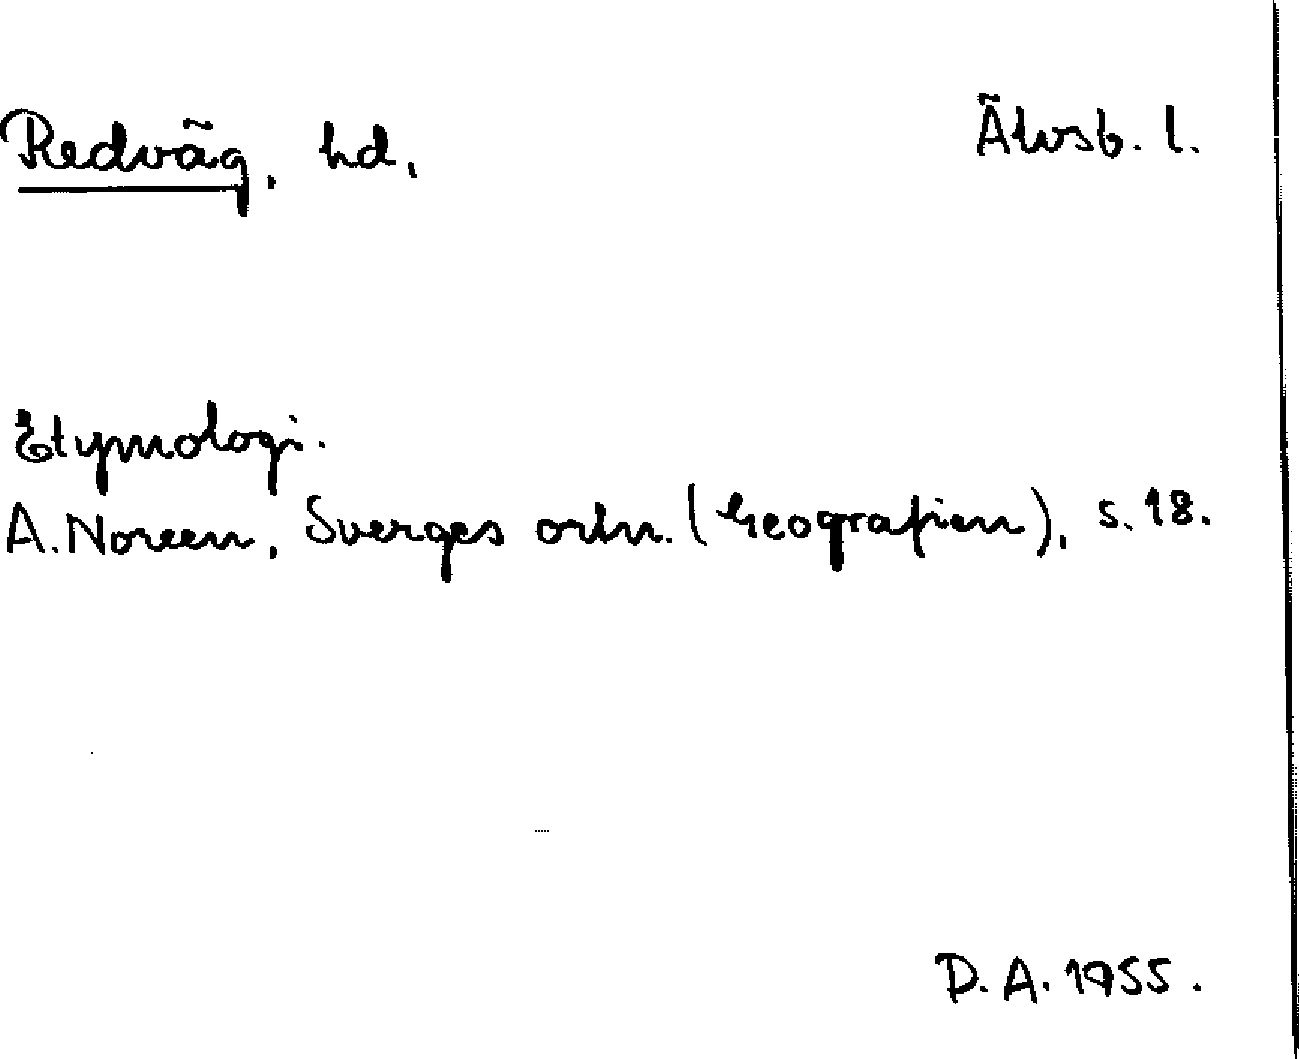 Redväg, hd.
Älvsb. l.
Etymologi.
A. Noreen, Sverges ortn. (Geografien), s. 18.
D. A. 1955.